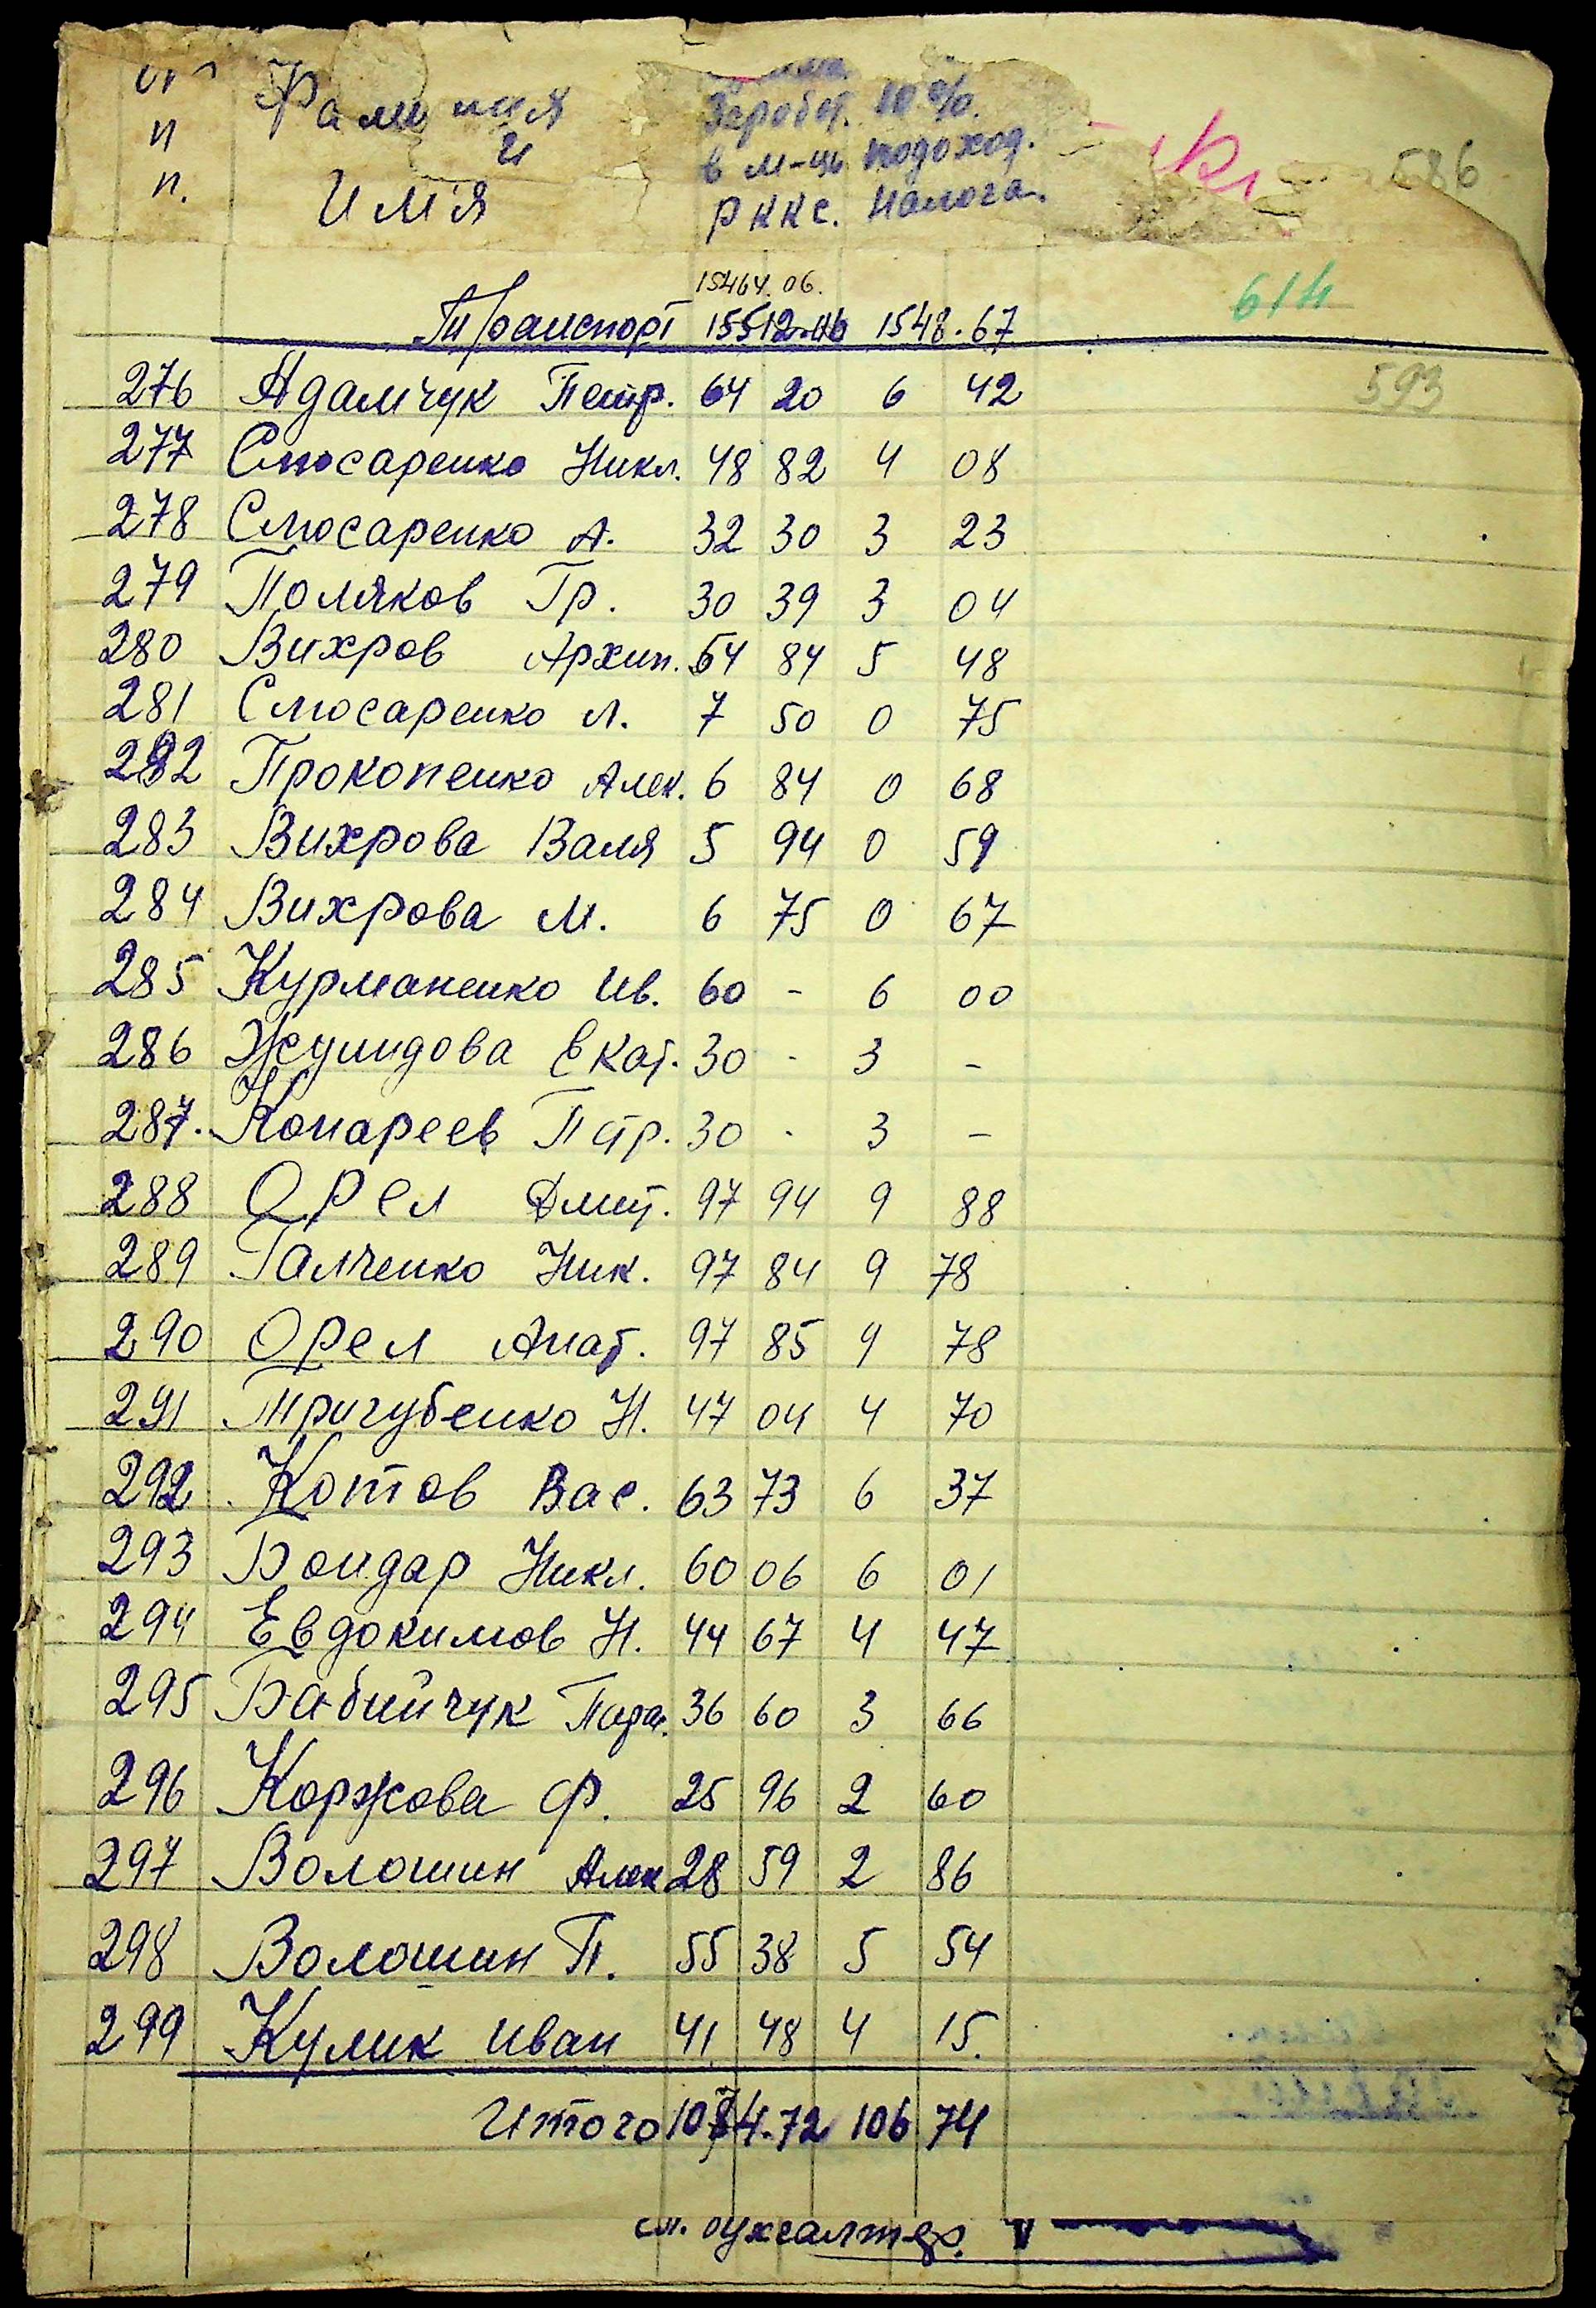 п
п.
Фамилия
и
Имя
Заработ. 10%
в м-ць подоход.
РККС. налога.
586
614
15464.06.
Транспорт 15512.06 1548.67
593
276 Адамчук Петр. 64 20 6 42
277 Слюсаренко Никл. 48 82 4 08
278 Слюсаренко А. 32 30 3 23
279 Поляков Гр. 30 39 3 04
280 Вихров Архип. 54 84 5 48
281 Слюсаренко Л. 7 50 0 75
282 Прокопенко Алек. 6 84 0 68
283 Вихрова Валя 5 94 0 59
284 Вихрова М. 6 75 0 67
285 Курманенко Ив. 60 - 6 00
286 Жулидова Екат. 30 - 3 -
287. Конареев Петр. 30 - 3 -
288 Орел Дмит. 97 94 9 88
289 Галченко Ник. 97 84 9 78
290 Орел Анат. 97 85 9 78
291 Тригубенко Н. 47 04 4 70
292 Котов Вас. 63 73 6 37
293 Бондар Никл. 60 06 6 01
294 Евдокимов Н. 44 67 4 47
295 Бабийчук Пара. 36 60 3 66
296 Коржова Ф. 25 96 2 60
297 Волошин Алек 28 59 2 86
298 Волошин П. 55 38 5 54
299 Кулик Иван 41 48 4 15.
Итого 1074.72 106 74
ст. бухгалтер.